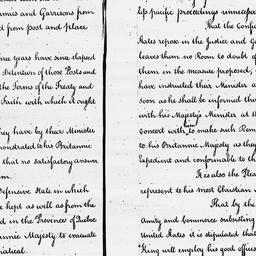 amies and Garrisons from
d from post and place
ree years have since elapsed
Detention of those Posts and
the Terms of the Treaty and
Faith with which it ought
hey have by their Minister
monstrated to his Britannic
that no satisfactory answer
em.
Defensive State in which
e kept as well as from the
d in the Province of Quebec
annic Majesty to evacuate
matical.
less pacific proceedings unneces
That the Confi
States repose in the Justice and G
leaves them no Room to doubt of
them in the measure proposed,
have instructed their Minister a
soon as he shall be informed tha
with his Majesty's Minister at th
Concert with to make such Rem
to his Britannic Majesty as they
Expedient and conformable to th
It is also the Plea
represent to his most Christian
That by the
Amity and Commerce subsisting
United States it is stipulated that
"King will employ his good offices